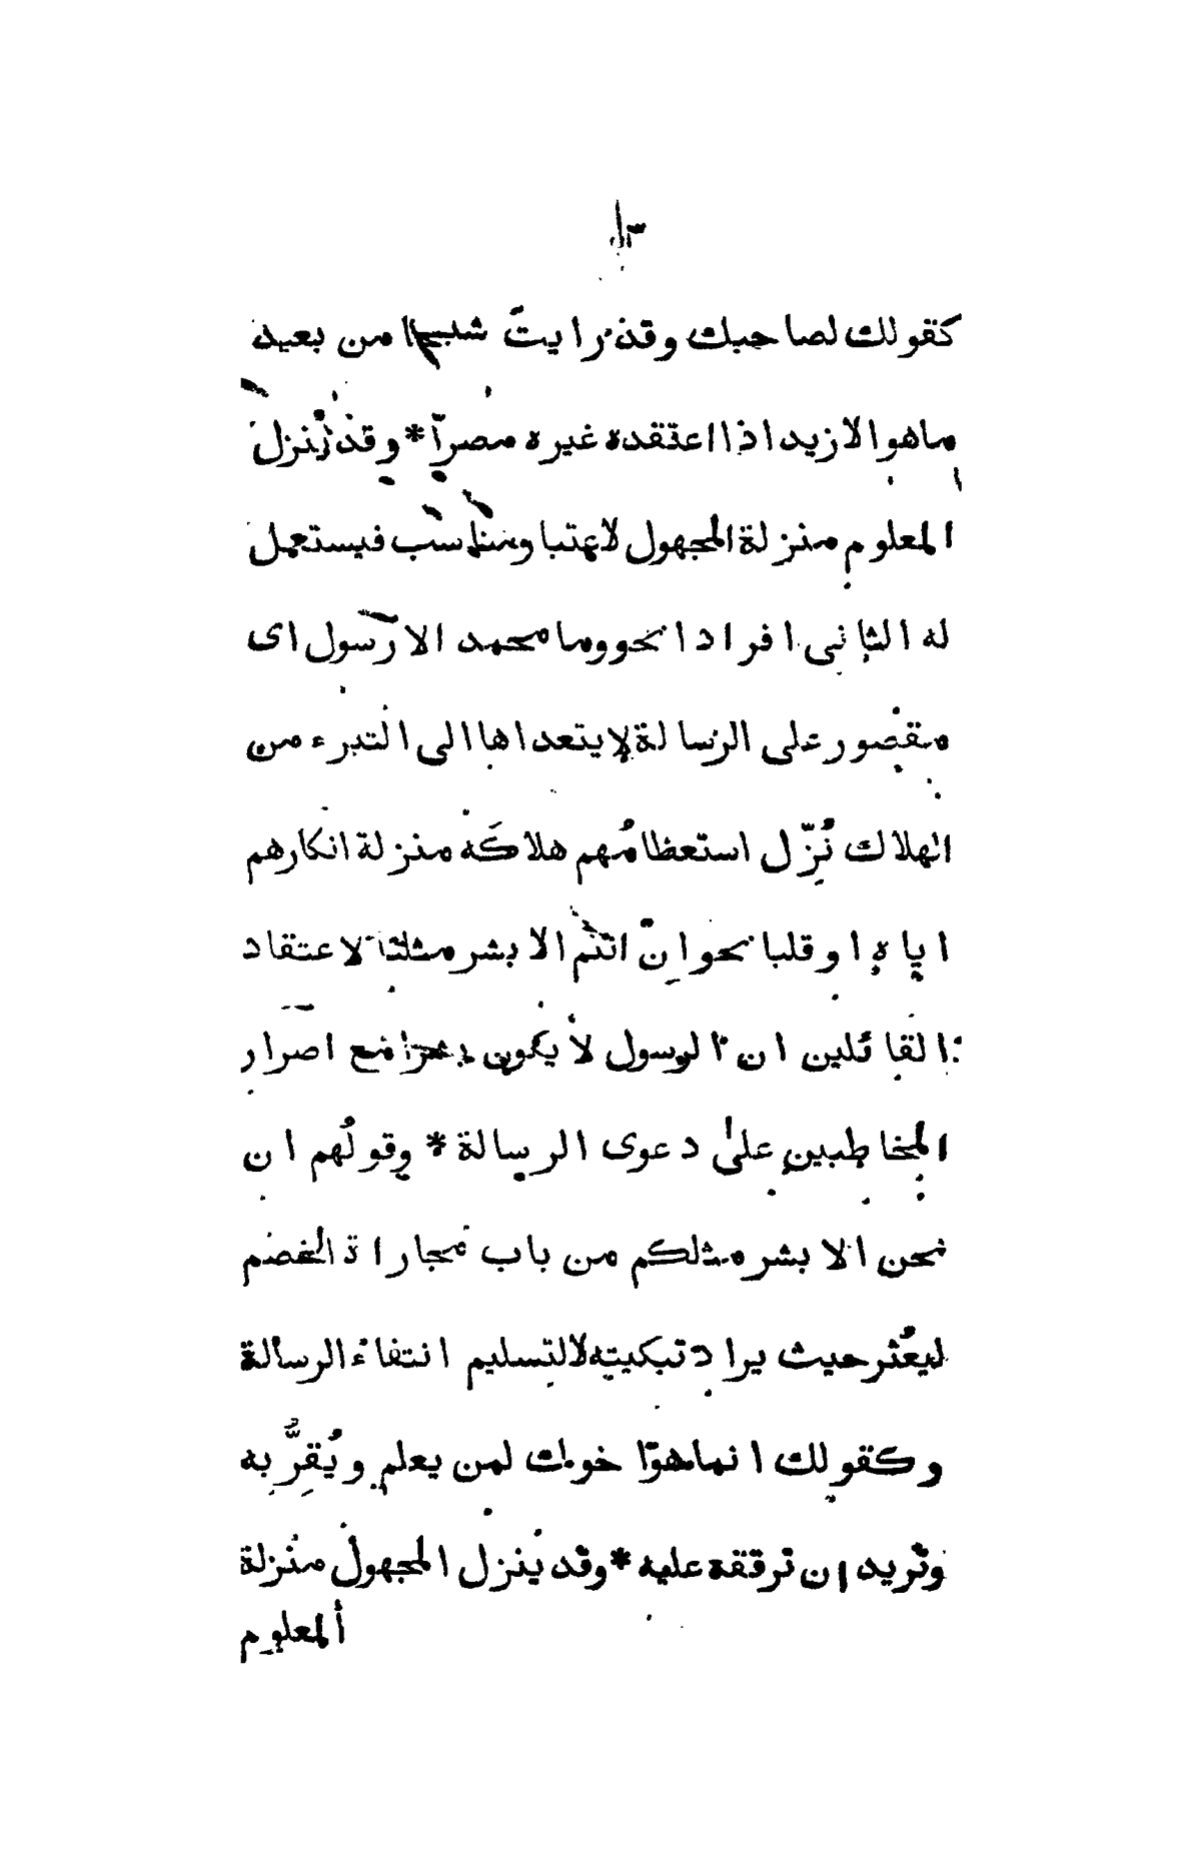 كقولك لصاحبك وقد رايت شبحا من بعيد
ما هو الا زيد اذا اعتقده غيره مصرّا * وقد يُنزل
المعلوم منزلة المجهول لاعتبار مناسب فيستعمل
له الثانى افرادا نحو وما محمد الا رسول اى
مقصور على الرسالة لا يتعداها الى التبرء من
الهلاك نُزّل استعظامُهم هلاكَه منزلة انكارهم
اياه او قلبا نحو ان انتم الا بشر مثلنا لاعتقاد
القائلين ان الرسول لا يكون بشرا مع اصرار
المخاطبين على دعوى الرسالة * وقولُهم ان
نحن الا بشر مثلكم من باب مجاراة الخصم
ليعثُر حيث يراد تبكيته لا لتسليم انتفاء الرسالة
وكقولك انما هو اخوك لمن يعلم ويُقرُّ به
وتريد ان ترققه عليه * وقد ينزل المجهول منزلة
المعلوم